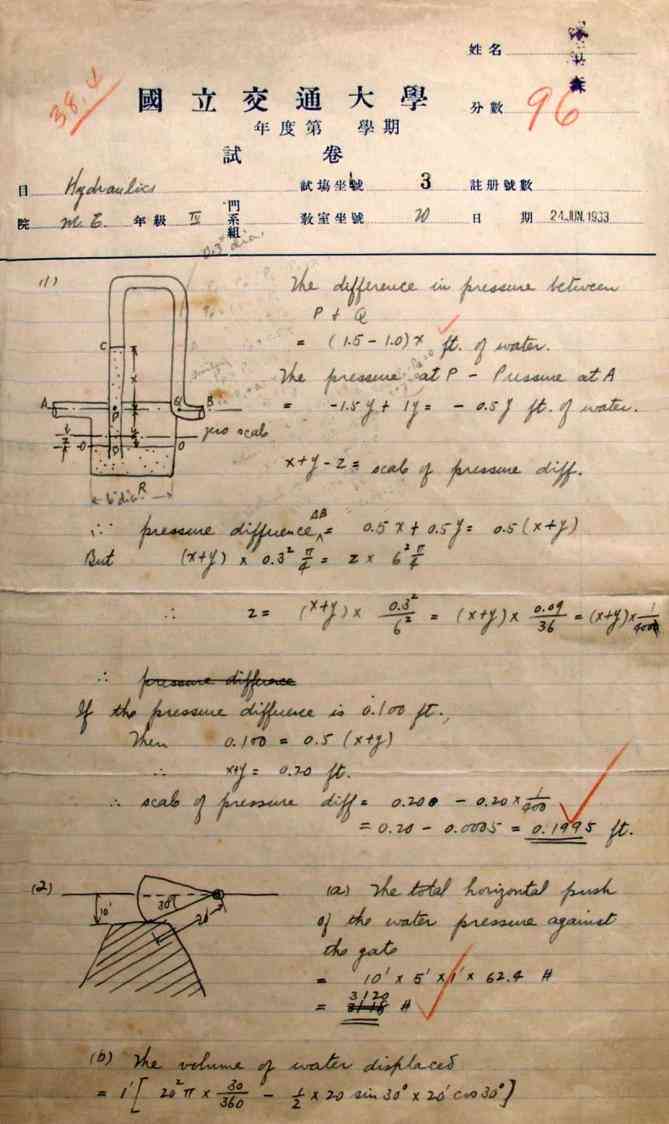 姓名
38.4
國立交通大學
分數 96
年度第 學期
試 卷
目 Hydraulics 試場坐號 3 註册號數
院 M.E. 年級 IV 門系組 教室坐號 20 日 期 24.JUN.1933
0.3" dia.
(1)
The difference in pressure between
P & Q
= (1.5 - 1.0)x ft. of water.
The pressure at P - Pressure at A
= -1.5y + 1y = - 0.5y ft. of water.
x+y-z = scale of pressure diff.
C
A
P
Q
B
zero scale
O
D
O
R
6" dia.
∴ pressure difference AB = 0.5x + 0.5y = 0.5(x+y)
But (x+y) × 0.3² π/4 = z × 6² π/4
∴ z = (x+y) × 0.3²/6² = (x+y) × 0.09/36 = (x+y) × 1/400
∴ pressure difference
If the pressure difference is 0.100 ft.,
Then 0.100 = 0.5 (x+y)
∴ x+y = 0.20 ft.
∴ scale of pressure diff = 0.200 - 0.20 × 1/400
= 0.20 - 0.0005 = 0.1995 ft.
(2)
10'
30°
20'
(a) The total horizontal push
of the water pressure against
the gate
= 10' × 5' × 1' × 62.4 #
= 3120 #
(b) The volume of water displaced
= 1' [ 20² π × 30/360 - 1/2 × 20 sin 30° × 20' cos 30° ]